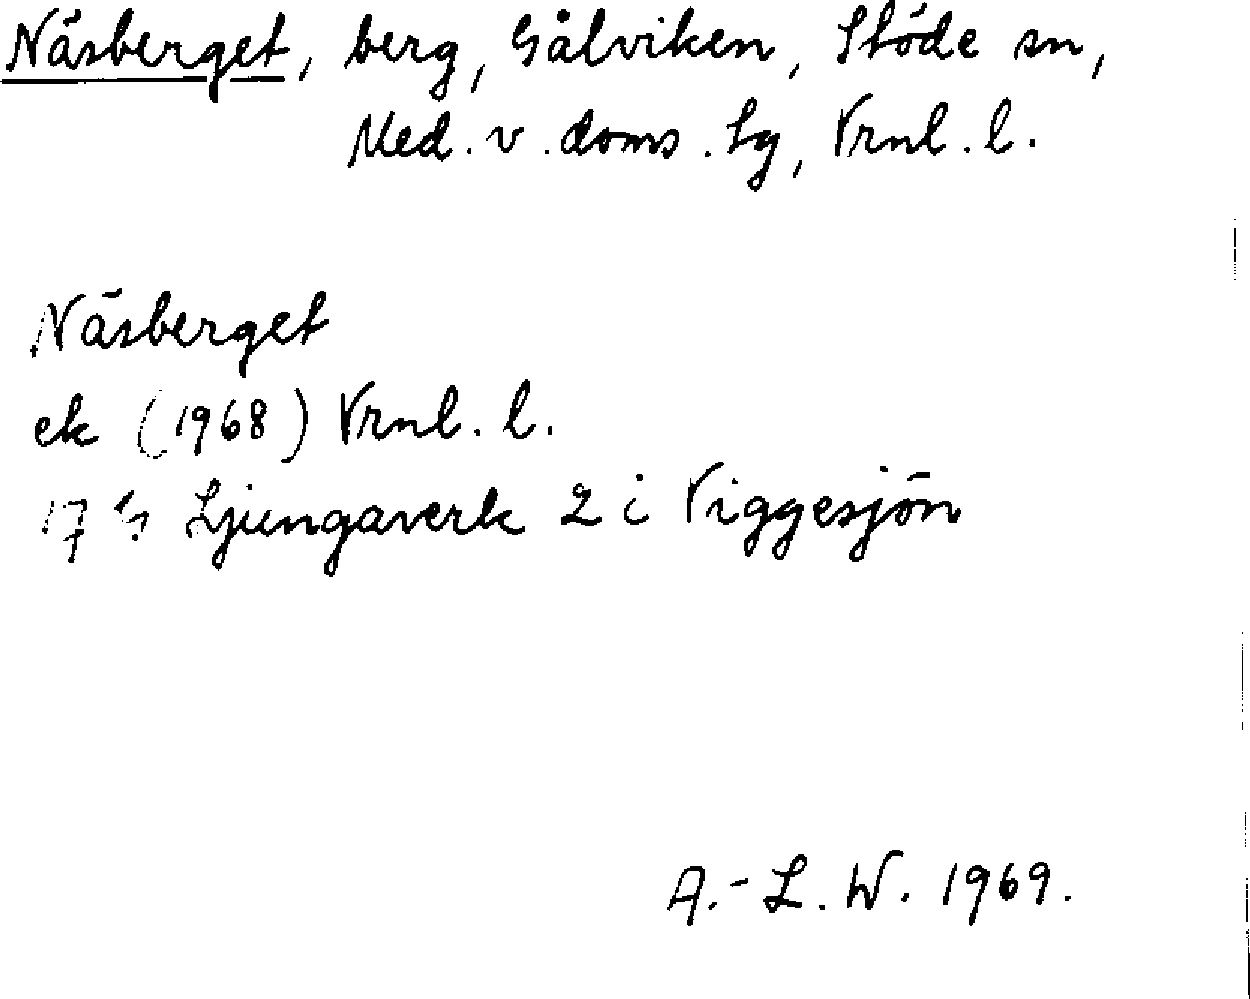 Näsberget, berg, Gålviken, Stöde sn,
Med. v. doms. tg, Vrnl. l.
Näsberget
ek (1968) Vrnl. l.
17 G Ljungaverk 2 i Viggesjön
A.-L. W. 1969.